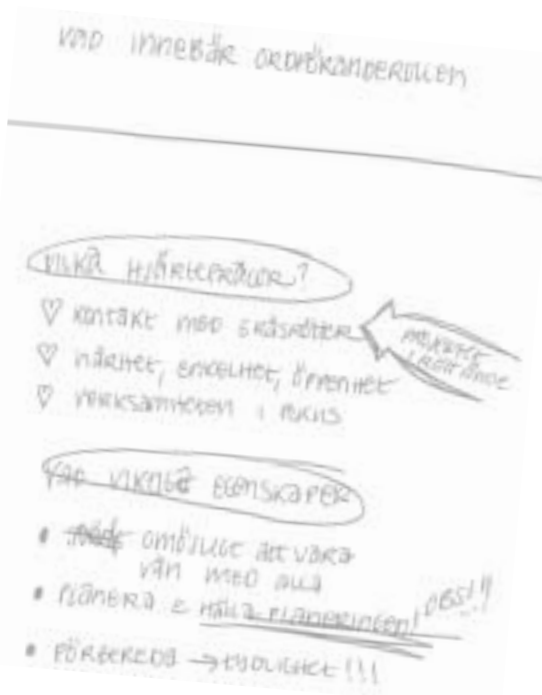 VAD INNEBÄR ORDFÖRANDEROLLEN
VILKA HJÄRTEFRÅGOR?
KONTAKT MED GRÄSRÖTTER
NÄRHET, ENKELHET, ÖPPENHET
VERKSAMHETEN I FOKUS
VIKTIGA EGENSKAPER
OMÖJLIGT ATT VARA
VÄN MED ALLA
PLANERA & HÅLLA PLANERINGEN! OBS!!
FÖRBEREDA → TYDLIGHET!!!